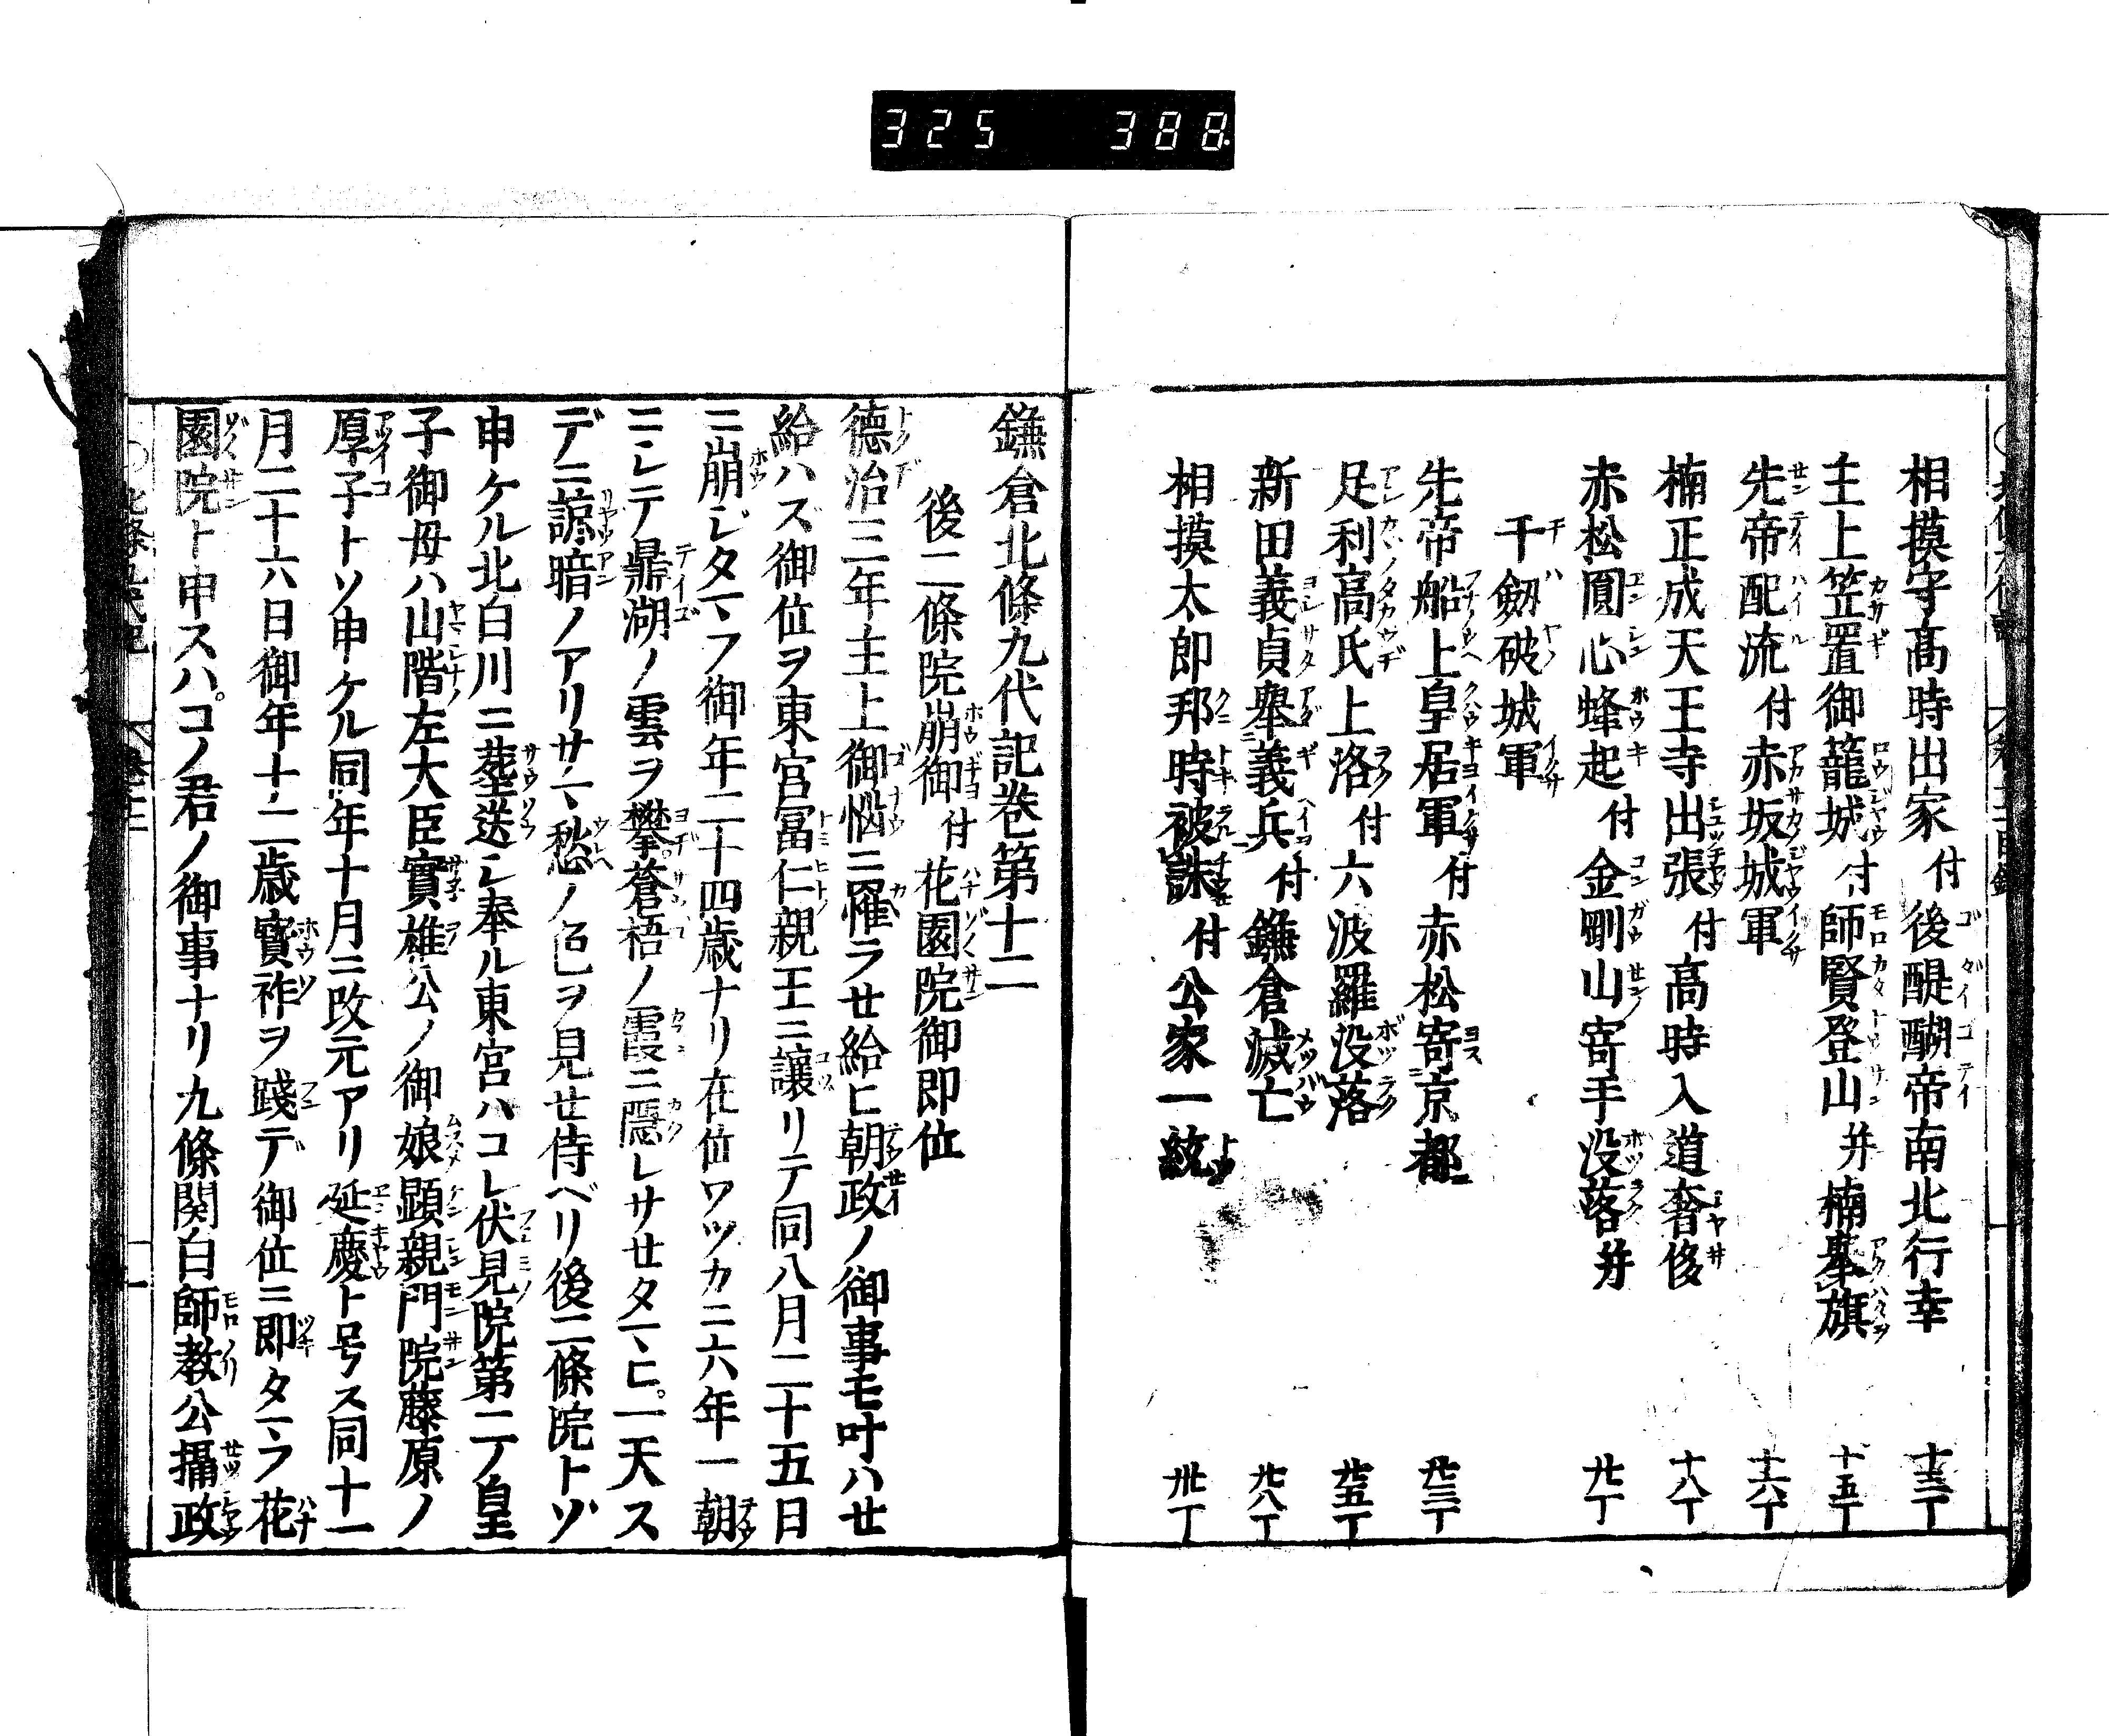 325 388
相摸守髙時出家付後醍醐帝南北行幸 十三丁
主上笠置御籠城付師賢登山并楠擧旗 十五丁
先帝配流付赤坂城軍 十六丁
楠正成天王寺出張付高時入道奢侈 十八丁
赤松圓心蜂起付金剛山寄手没落并 廿一丁
千劔破城軍
先帝船上皇居軍付赤松寄京都 廿三丁
足利高氏上洛付六波羅没落 廿五丁
新田義貞擧義兵付鎌倉滅亡 廿八丁
相摸太郎邦時被誅付公家一統 卅一丁
鎌倉北條九代記巻第十二
後二條院崩御付花園院御即位
徳治三年主上御惱ニ罹ラせ給ヒ朝政ノ御事モ叶ハせ
給ハズ御位ヲ東宮冨仁親王ニ讓リテ同八月二十五日
ニ崩ジタマフ御年二十四歳ナリ在位ワツカニ六年一朝
ニシテ鼎湖ノ雲ヲ攀蒼梧ノ霞ニ隱レサせタマヒ。一天ス
デニ諒暗ノアリサマ愁ノ色ヲ見せ侍ベリ後二條院トゾ
申ケル北白川ニ葬送シ奉ル東宮ハコレ伏見院第二ノ皇
子御母ハ山階左大臣實雄公ノ御娘顕親門院藤原ノ
厚子トソ申ケル同年十月ニ改元アリ延慶ト号ス同十一
月二十六日御年十二歳寳祚ヲ踐デ御位ニ即タマフ花
園院ト申スハ。コノ君ノ御事ナリ九條関白師教公攝政